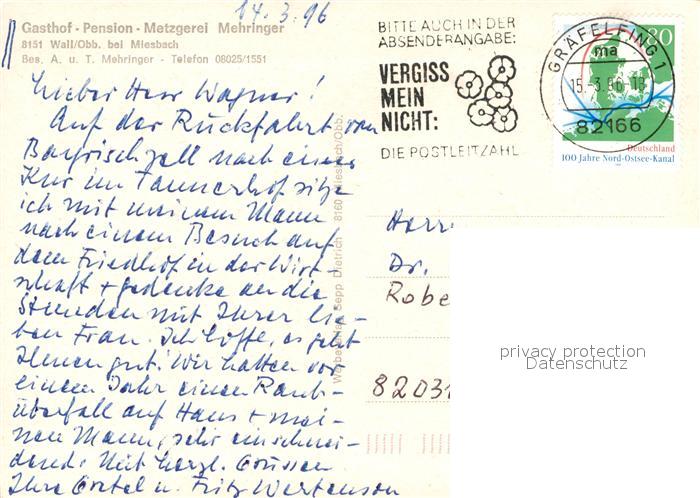 14.3.96
Gasthof - Pension - Metzgerei Mehringer
8151 Wall/Obb. bei Miesbach
Bes. A. u. T. Mehringer - Telefon 08025/1551
Lieber Herr Wagner!
Auf der Rückfahrt von
Bayrischzell nach einer
Kur im Tannerhof sitze
ich mit meinem Mann
nach einem Besuch auf
dem Friedhof in der Wirt-
schaft + gedenke an die
Stunden mit Ihrer lie-
ben Frau. Ich hoffe, es geht
Ihnen gut! Wir hatten vor
einem Jahr einen Raub-
überfall auf Haus + mei-
nen Mann, sehr einschnei-
dend. Mit herzl. Grüssen
Ihre u. Fritz
Sepp Dietrich 8160 Miesbach/Obb.
BITTE AUCH IN DER
ABSENDERANGABE:
VERGISS
MEIN
NICHT:
DIE POSTLEITZAHL
GRÄFELFING 1
ma
15.-3.96-18
82166
80
Deutschland
100 Jahre Nord-Ostsee-Kanal
Herr
Dr.
Robe
82031
privacy protection
Datenschutz